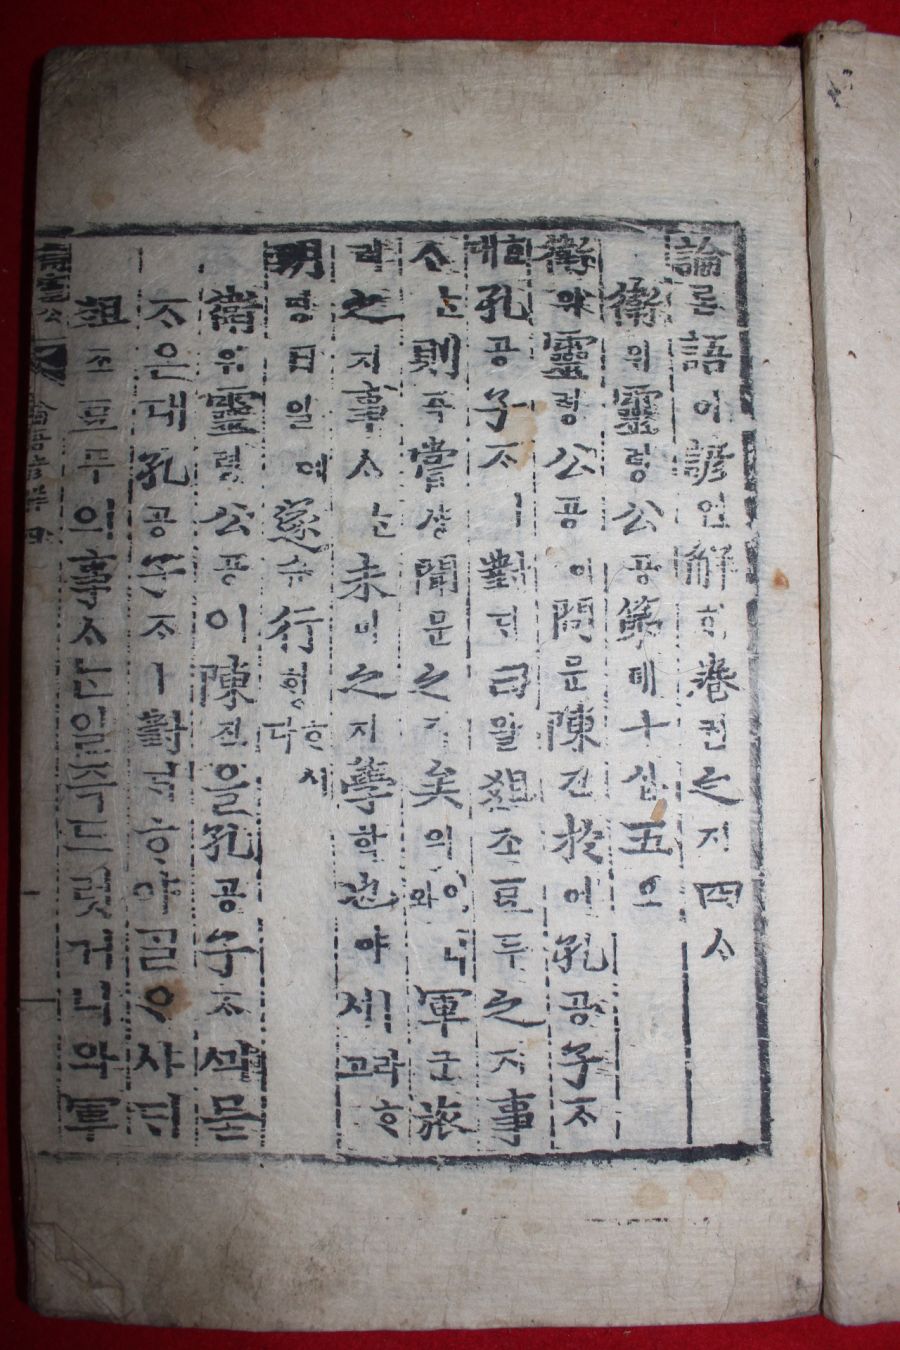 論론語어諺언解ᄒᆡ卷권之지四ᄉᆞ
衛위靈령公공第뎨十십五오
衛위靈령公공이問문陳진於어孔공子ᄌᆞ
ᄒᆞᆫ대孔공子ᄌᆞㅣ對ᄃᆡ曰왈俎조豆두之지事
ᄉᆞᄂᆞᆫ則즉嘗샹聞문之지矣의어니와軍군旅
려之지事ᄉᆞᄂᆞᆫ未미之지學학也야ㅣ라ᄒᆞ시고
明명日일에遂슈行ᄒᆡᆼᄒᆞ시다
衛위靈령公공이陳진을孔공子ᄌᆞᄭᅴ묻
ᄌᆞ온대孔공子ᄌᆞㅣ對ᄃᆡᄒᆞ야ᄀᆞᆯᄋᆞ샤ᄃᆡ
俎조豆두의事ᄉᆞᄂᆞᆫ일즉드럿거니와軍